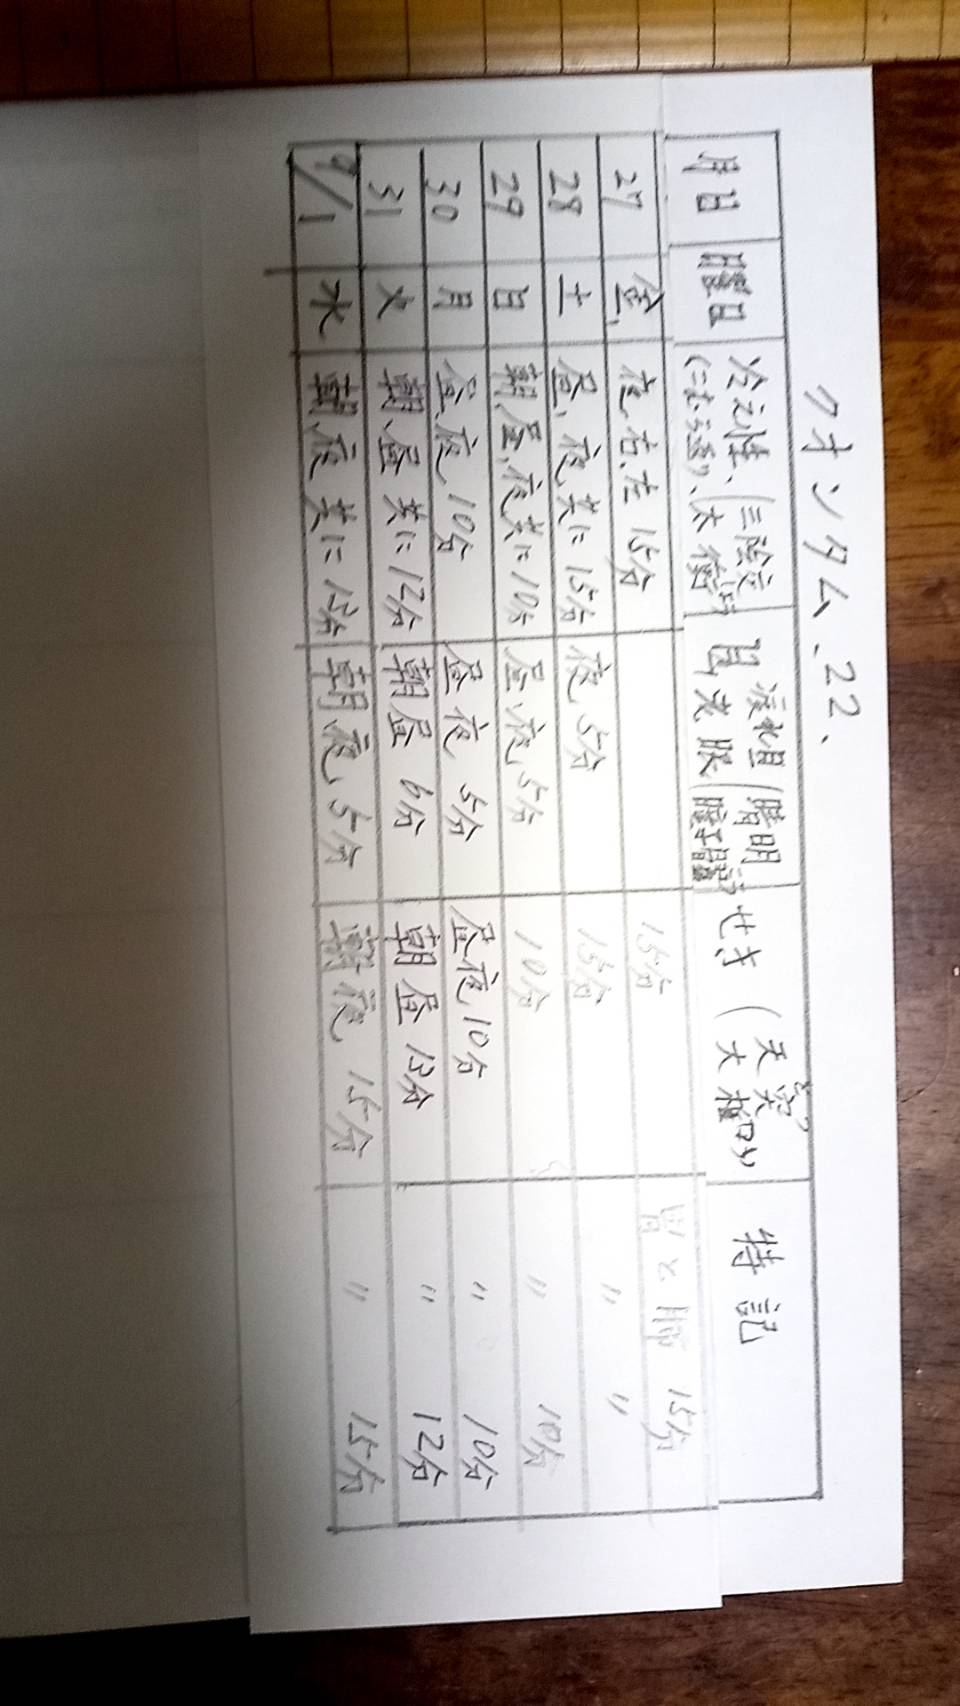 クオンタム、22、
月日 曜日 冷え性、(三陰交 疲れ目(睛明 せき(天突 特記
(こむら返り)、太衝 目老眼 瞳子
27 金、 夜、右、左 15分 15分 胃と肺 15分
28 土 昼、夜共に15分 夜、5分 15分 〃 〃
29 日 朝、昼、夜共に10分 昼、夜、5分 10分 〃 10分
30 月 昼、夜、10分 昼夜、5分 昼夜10分 〃 10分
31 火 朝、昼 共に12分 朝昼 6分 朝昼 13分 〃 12分
9/1 水 朝、夜 共に13分 朝、夜、5分 朝夜、15分 〃 15分